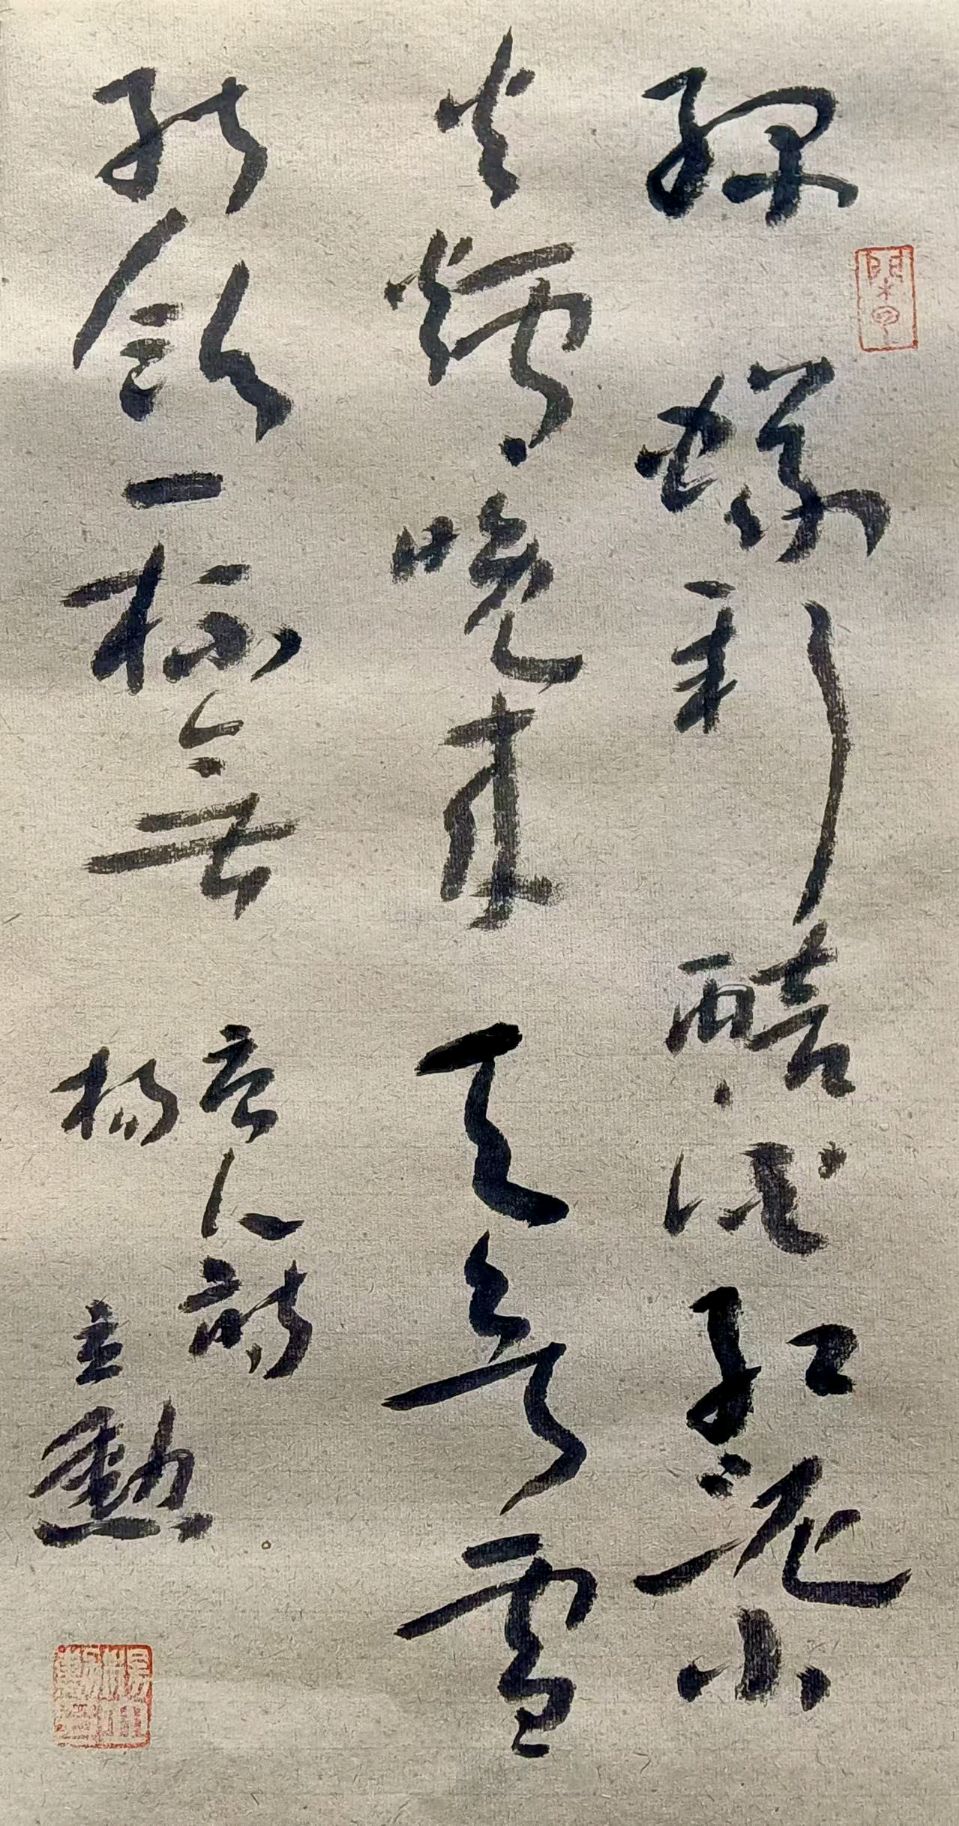 綠蟻新醅酒紅泥小
火爐晚來天欲雪
能飲一杯無
唐人詩
楊立勳